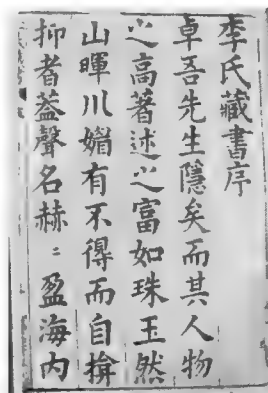 李氏藏書序
卓吾先生隱矣而其人物
之高著述之富如珠玉然
山暉川媚有不得而自揜
抑者葢聲名赫〻盈海内